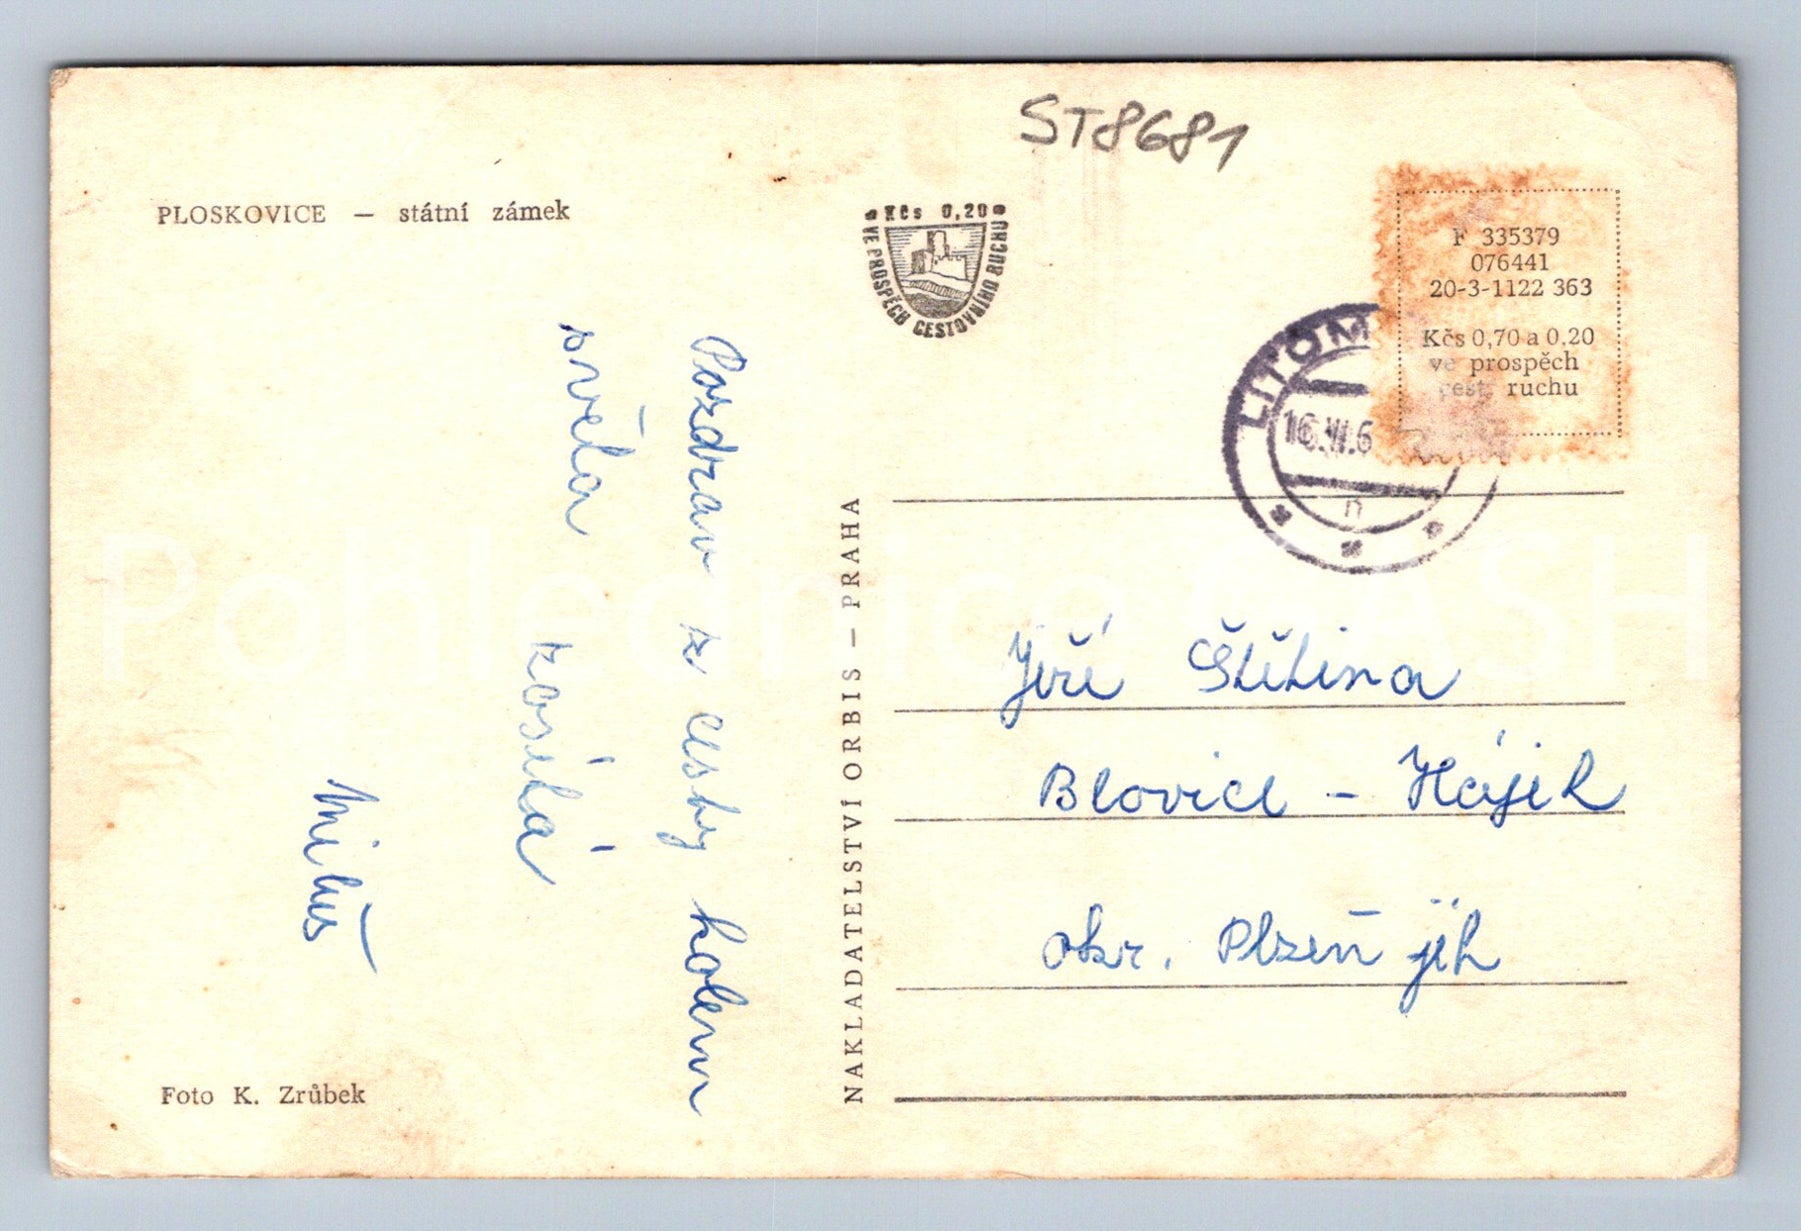 ST8681
PLOSKOVICE — státní zámek
Kčs 0,20
VE PROSPĚCH CESTOVNÍHO RUCHU
F 335379
076441
20-3-1122 363
Kčs 0,70 a 0.20
ve prospěch
cest. ruchu
LITOM
16.VI.6
n
Pozdrav z cesty kolem
světa
zasílá
Miluš
NAKLADATELSTVÍ ORBIS — PRAHA
Jiří Štětina
Blovice - Hájek
okr. Plzeň jih
Foto K. Zrůbek
Pohlednice CASH